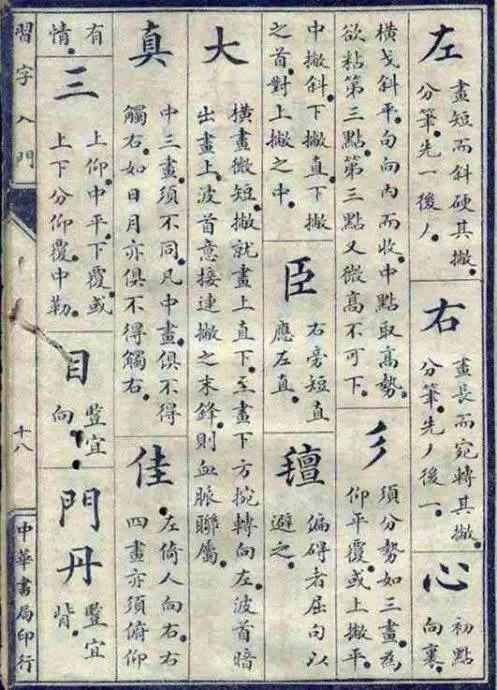 左
畫短而斜硬其撇。
分筆。先一後丿。
右
畫長而宛轉其撇。
分筆。先丿後一。
心
初點
向裏。
橫戈斜平。句向內而收。中點取高勢。
欲粘第三點。第三點又微高不可下。
彡
須分勢如三畫。為
仰平覆。或上撇平。
中撇斜。下撇直。下撇
之首。對上撇之中。
臣
右旁短直
應左直。
偏礙者屈句以
避之。
大
橫畫微短。撇就畫上直下。至畫下方捥轉向左。波首暗
出畫上。波首意接連撇之末鋒。則血脈聯屬。
真
中三畫須不同。凡中畫。俱不得
觸右。如日月亦俱不得觸右。
佳
左倚人向右。右
四畫亦須俯仰
有
情。
三
上仰。中平。下覆。或
上下分仰覆。中勒。
目
豎宜
向。
門丹
豎宜
背。
習字入門
十八
中華書局印行